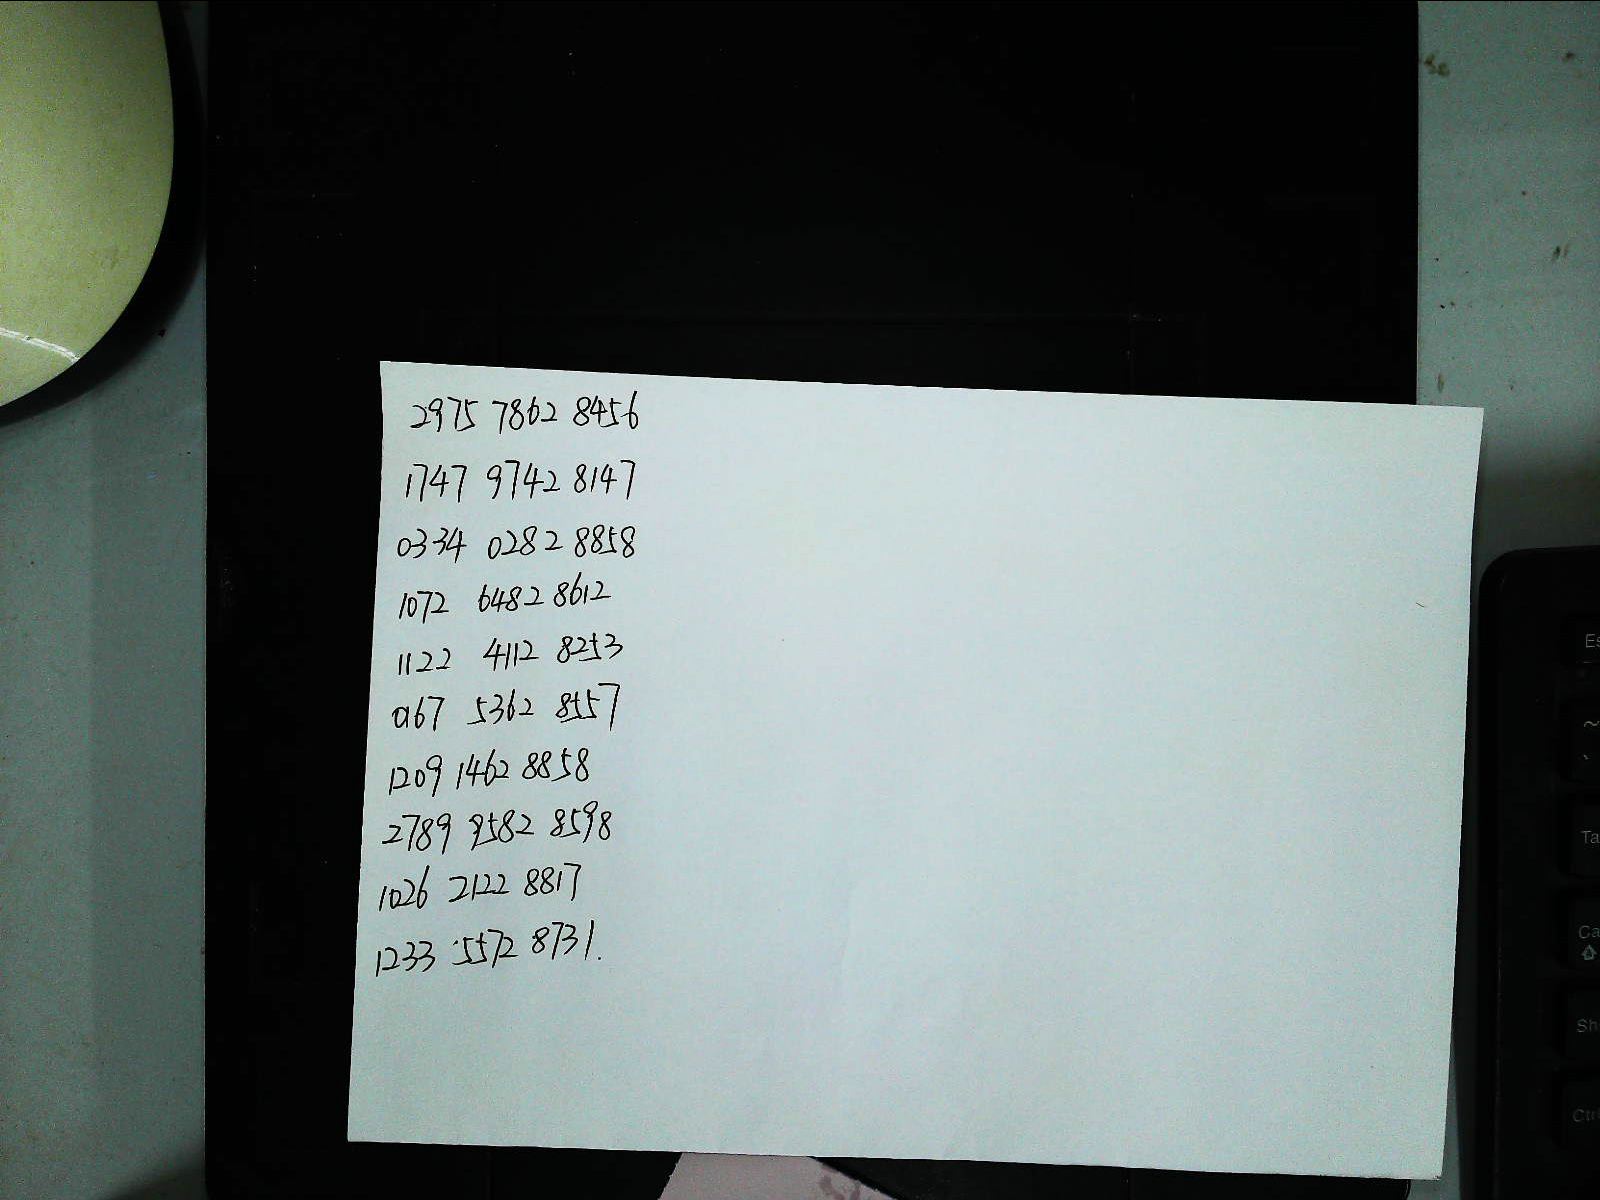 2975 7862 8456
1747 9742 8147
0334 0282 8858
1072 6482 8612
1122 4112 8253
0167 5362 8557
1209 1462 8858
2789 9582 8598
1026 2122 8817
1233 5572 8731.
Es
~
`
Ta
Ca
Sh
Ctrl